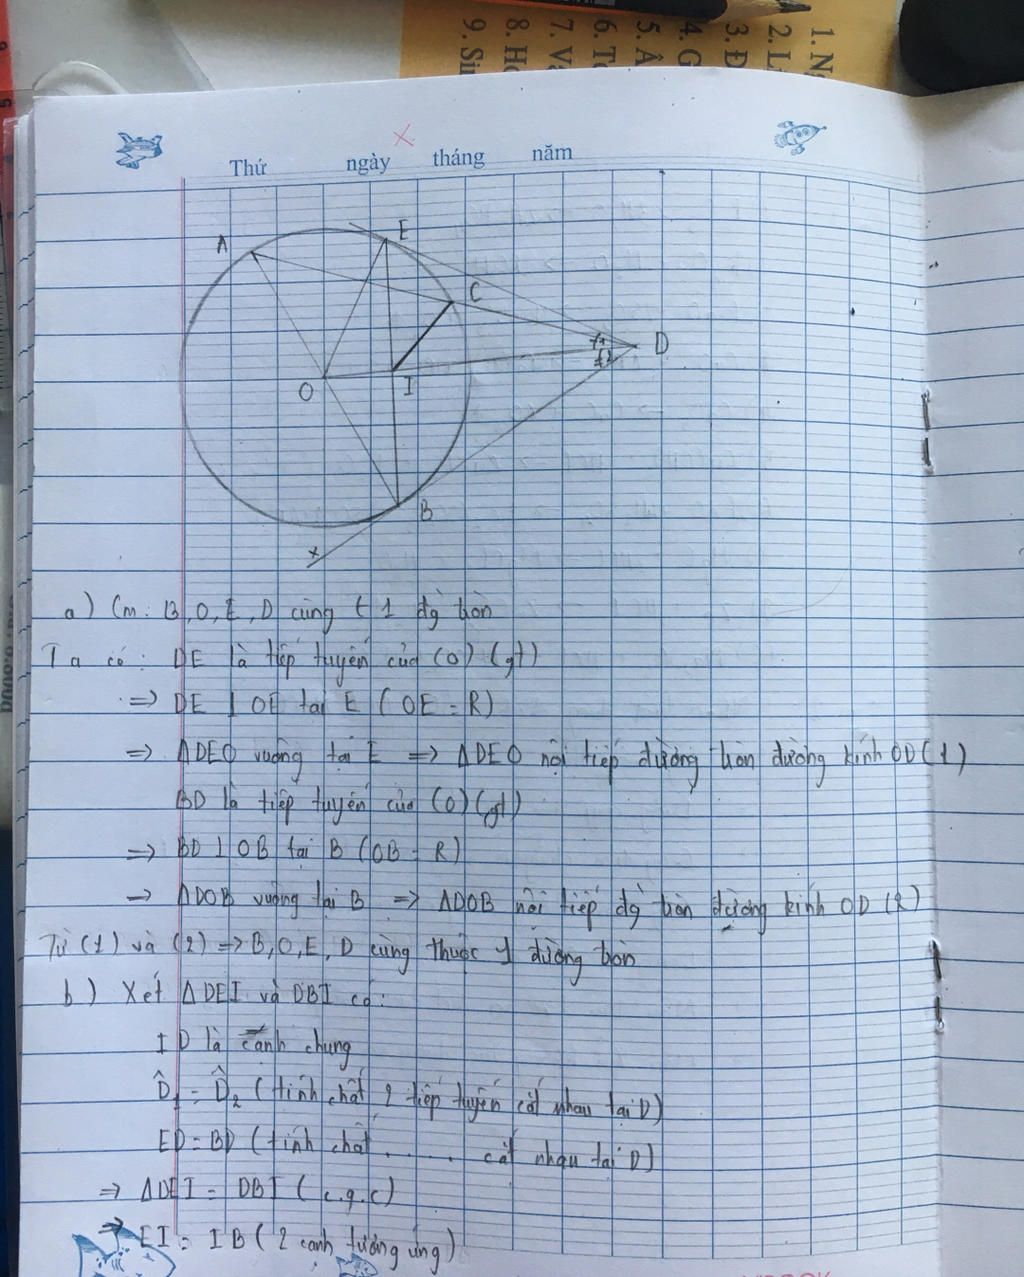 1. N
2. L
3. Đ
4. G
5. Â
6. T
7. V
8. H
9. Si
Thứ ngày tháng năm
A
E
C
D
O
I
B
x
a) Cm: B, O, E, D cùng t 1 đg tròn
Ta có: DE là tiếp tuyến của (O) (gt)
=> DE ⊥ OE tại E (OE = R)
=> ΔDEO vuông tại E => ΔDEO nội tiếp đường tròn đường kính OD (1)
BD là tiếp tuyến của (O) (gt)
=> BD ⊥ OB tại B (OB = R)
=> ΔDOB vuông tại B => ΔDOB nội tiếp đg tròn đường kính OD (2)
Từ (1) và (2) => B, O, E, D cùng thuộc 1 đường tròn
b) Xét ΔDEI và DBI có:
ID là cạnh chung
D̂₁ = D̂₂ (tính chất 2 tiếp tuyến cắt nhau tại D)
ED = BD (tính chất ...... cắt nhau tại D)
=> ΔDEI = DBI (c.g.c)
=> EI = IB (2 cạnh tương ứng)